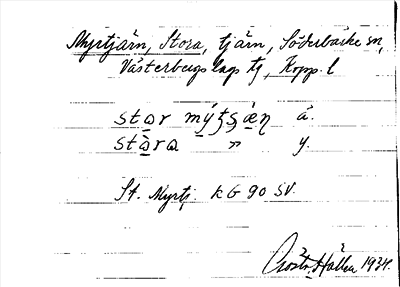 Myrtjärn, Stora, tjärn, Söderbärke sn,
Västerbergslags tg, Kopp. l
star mýtʂæ̀n å.
stàra " y.
St. Myrtj. kG 90 SV.
Gösta Hallen 1934.